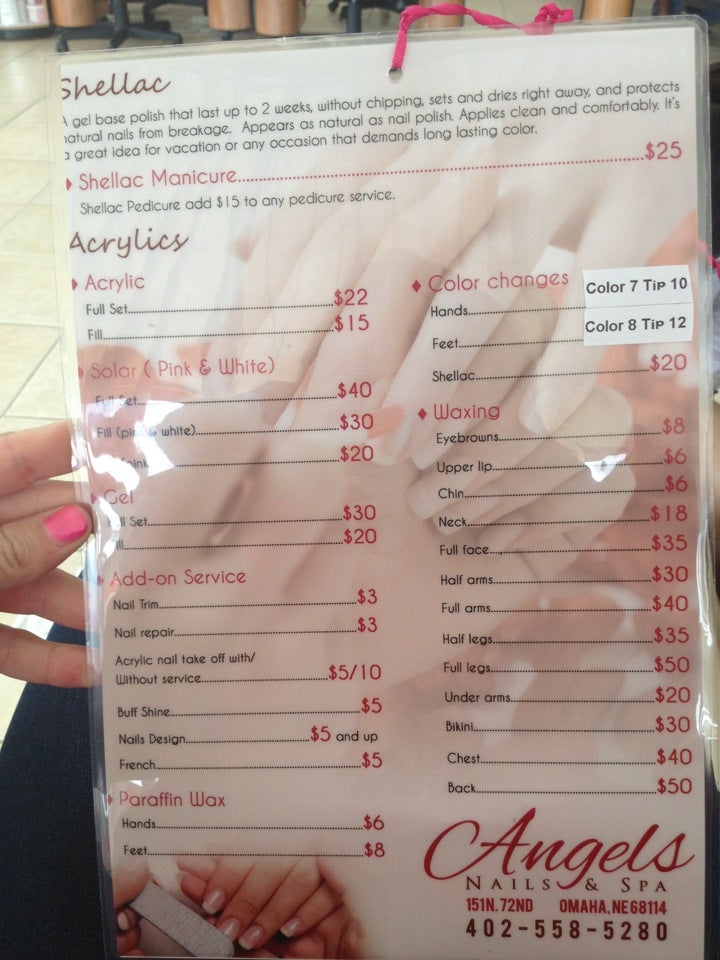 Shellac
A gel base polish that last up to 2 weeks, without chipping, sets and dries right away, and protects
natural nails from breakage. Appears as natural as nail polish. Applies clean and comfortably. It's
a great idea for vacation or any occasion that demands long lasting color.
Shellac Manicure $25
Shellac Pedicure add $15 to any pedicure service.
Acrylics
Acrylic
Full Set $22
Fill $15
Solar ( Pink & White)
Full Set $40
Fill (pink & white) $30
pink $20
Gel
Full Set $30
Fill $20
Add-on Service
Nail Trim $3
Nail repair $3
Acrylic nail take off with/
Without service $5/10
Buff Shine $5
Nails Design $5 and up
French $5
Paraffin Wax
Hands $6
Feet $8
Color changes
Hands Color 7 Tip 10
Feet Color 8 Tip 12
Shellac $20
Waxing
Eyebrowns $8
Upper lip $6
Chin $6
Neck $18
Full face $35
Half arms $30
Full arms $40
Half legs $35
Full legs $50
Under arms $20
Bikini $30
Chest $40
Back $50
Angels
NAILS & SPA
151N. 72ND OMAHA, NE 68114
402-558-5280